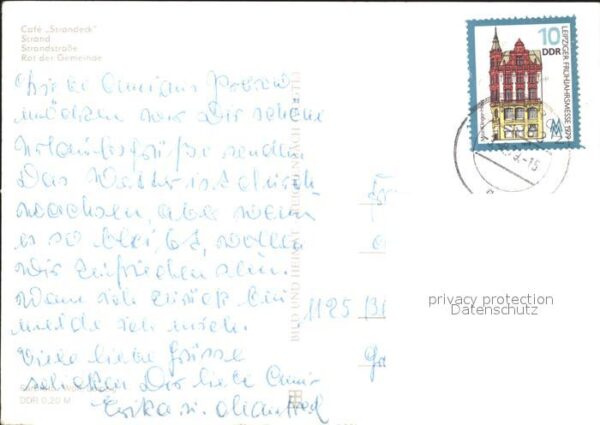 Café „Strandeck"
Strand
Strandstraße
Rat der Gemeinde
10
DDR
LEIPZIGER FRÜHJAHRSMESSE 1979
Liebe
möchten wir Dir schöne
Urlaubsgrüße senden
Das Wetter ist durch
wachsen, aber wenn
es so bleibt, wollen
wir zufrieden sein.
Wenn ich zurück bin
melde ich mich.
Viele liebe Grüsse
schicken Dir liebe
Erika u. Manfred
1195
BILD UND HEIMAT REICHENBACH
DDR 0,20 M
privacy protection
Datenschutz